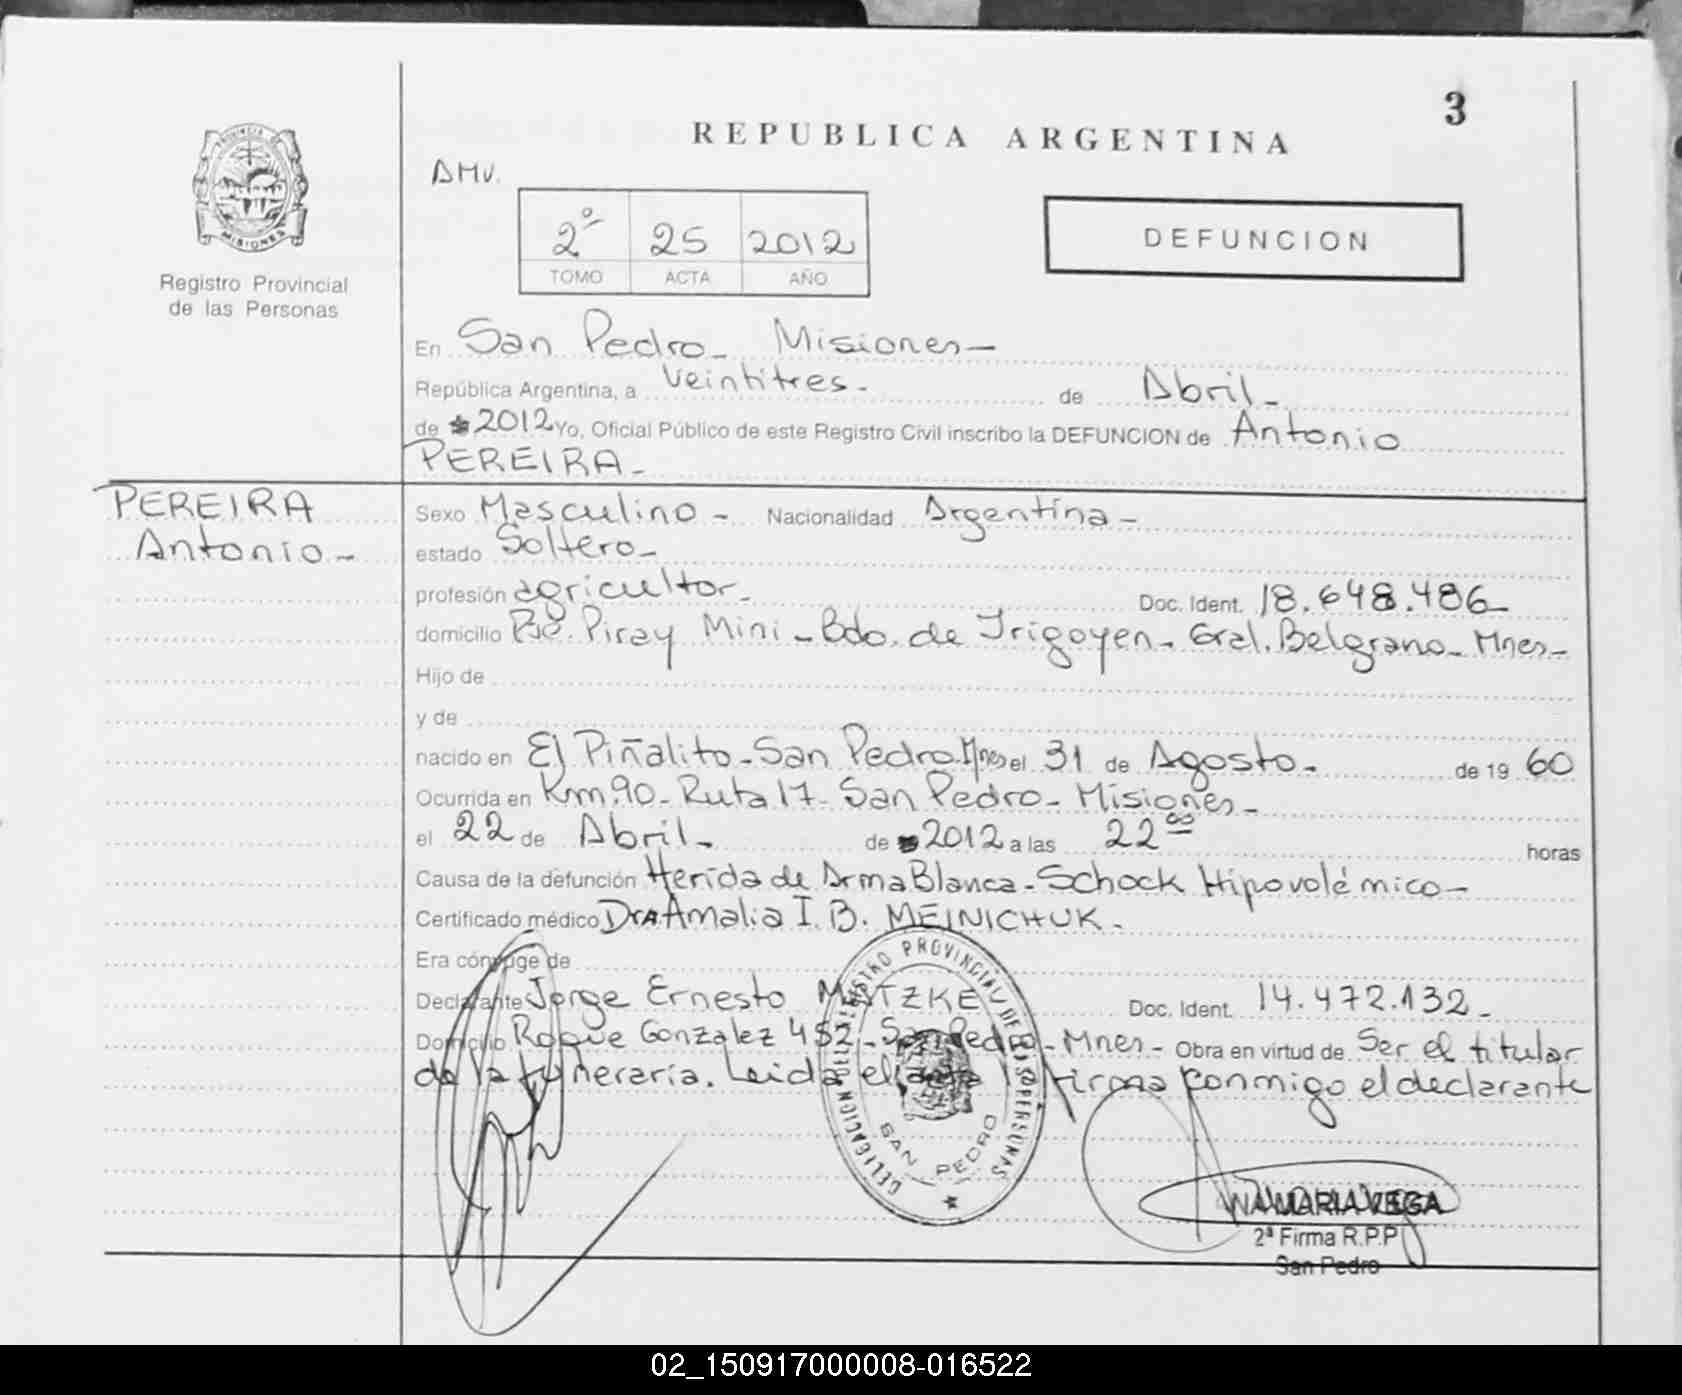 3
REPUBLICA ARGENTINA
AMV.
PROVINCIA DE
MISIONES
Registro Provincial
de las Personas
2º 25 2012
TOMO ACTA AÑO
DEFUNCION
En San Pedro_ Misiones_
República Argentina, a Veintitres. de Abril_
de 2012 Yo, Oficial Público de este Registro Civil inscribo la DEFUNCION de Antonio
PEREIRA_
PEREIRA
Antonio_
Sexo Masculino_ Nacionalidad Argentina_
estado Soltero_
profesión agricultor_ Doc. Ident. 18.648.486_
domicilio Pje. Piray Mini_Bdo. de Irigoyen_ Gral. Belgrano_ Mnes_
Hijo de
y de
nacido en El Piñalito_San Pedro.Mnes el 31 de Agosto. de 19 60
Ocurrida en Km.90_Ruta 17_San Pedro_ Misiones_
el 22 de Abril_ de 2012 a las 22 00 horas
Causa de la defunción Herida de Arma Blanca_Schock Hipovolémico_
Certificado médico Dra Amalia I. B. MEINICHUK.
Era cónyuge de
Declarante Jorge Ernesto MATZKE Doc. Ident. 14.472.132_
Domicilio Roque Gonzalez 452_San Pedro_Mnes_ Obra en virtud de Ser el titular
de la funeraria. Leida el acta firma conmigo el declarante
DELEGACION DEL REGISTRO PROVINCIAL DE LAS PERSONAS
SAN PEDRO
ANA MARIA VEGA
2ª Firma R.P.P
San Pedro
02_150917000008-016522